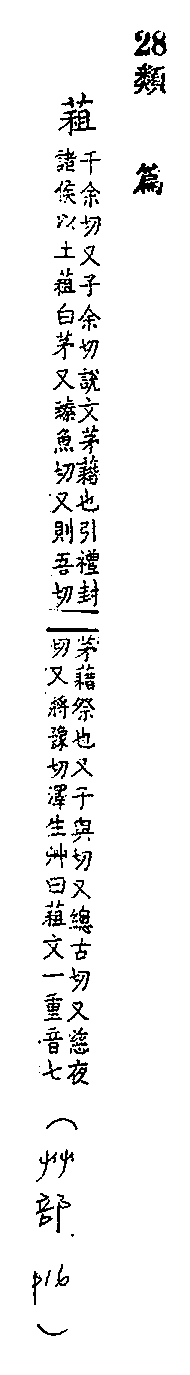 28類篇
蒩
千余切又子余切說文茅藉也引禮封
諸侯以土蒩白茅又臻魚切又則吾切
茅藉祭也又子與切又總古切又慈夜
切又將豫切澤生艸曰蒩文一重音七
(艸部.
p16)